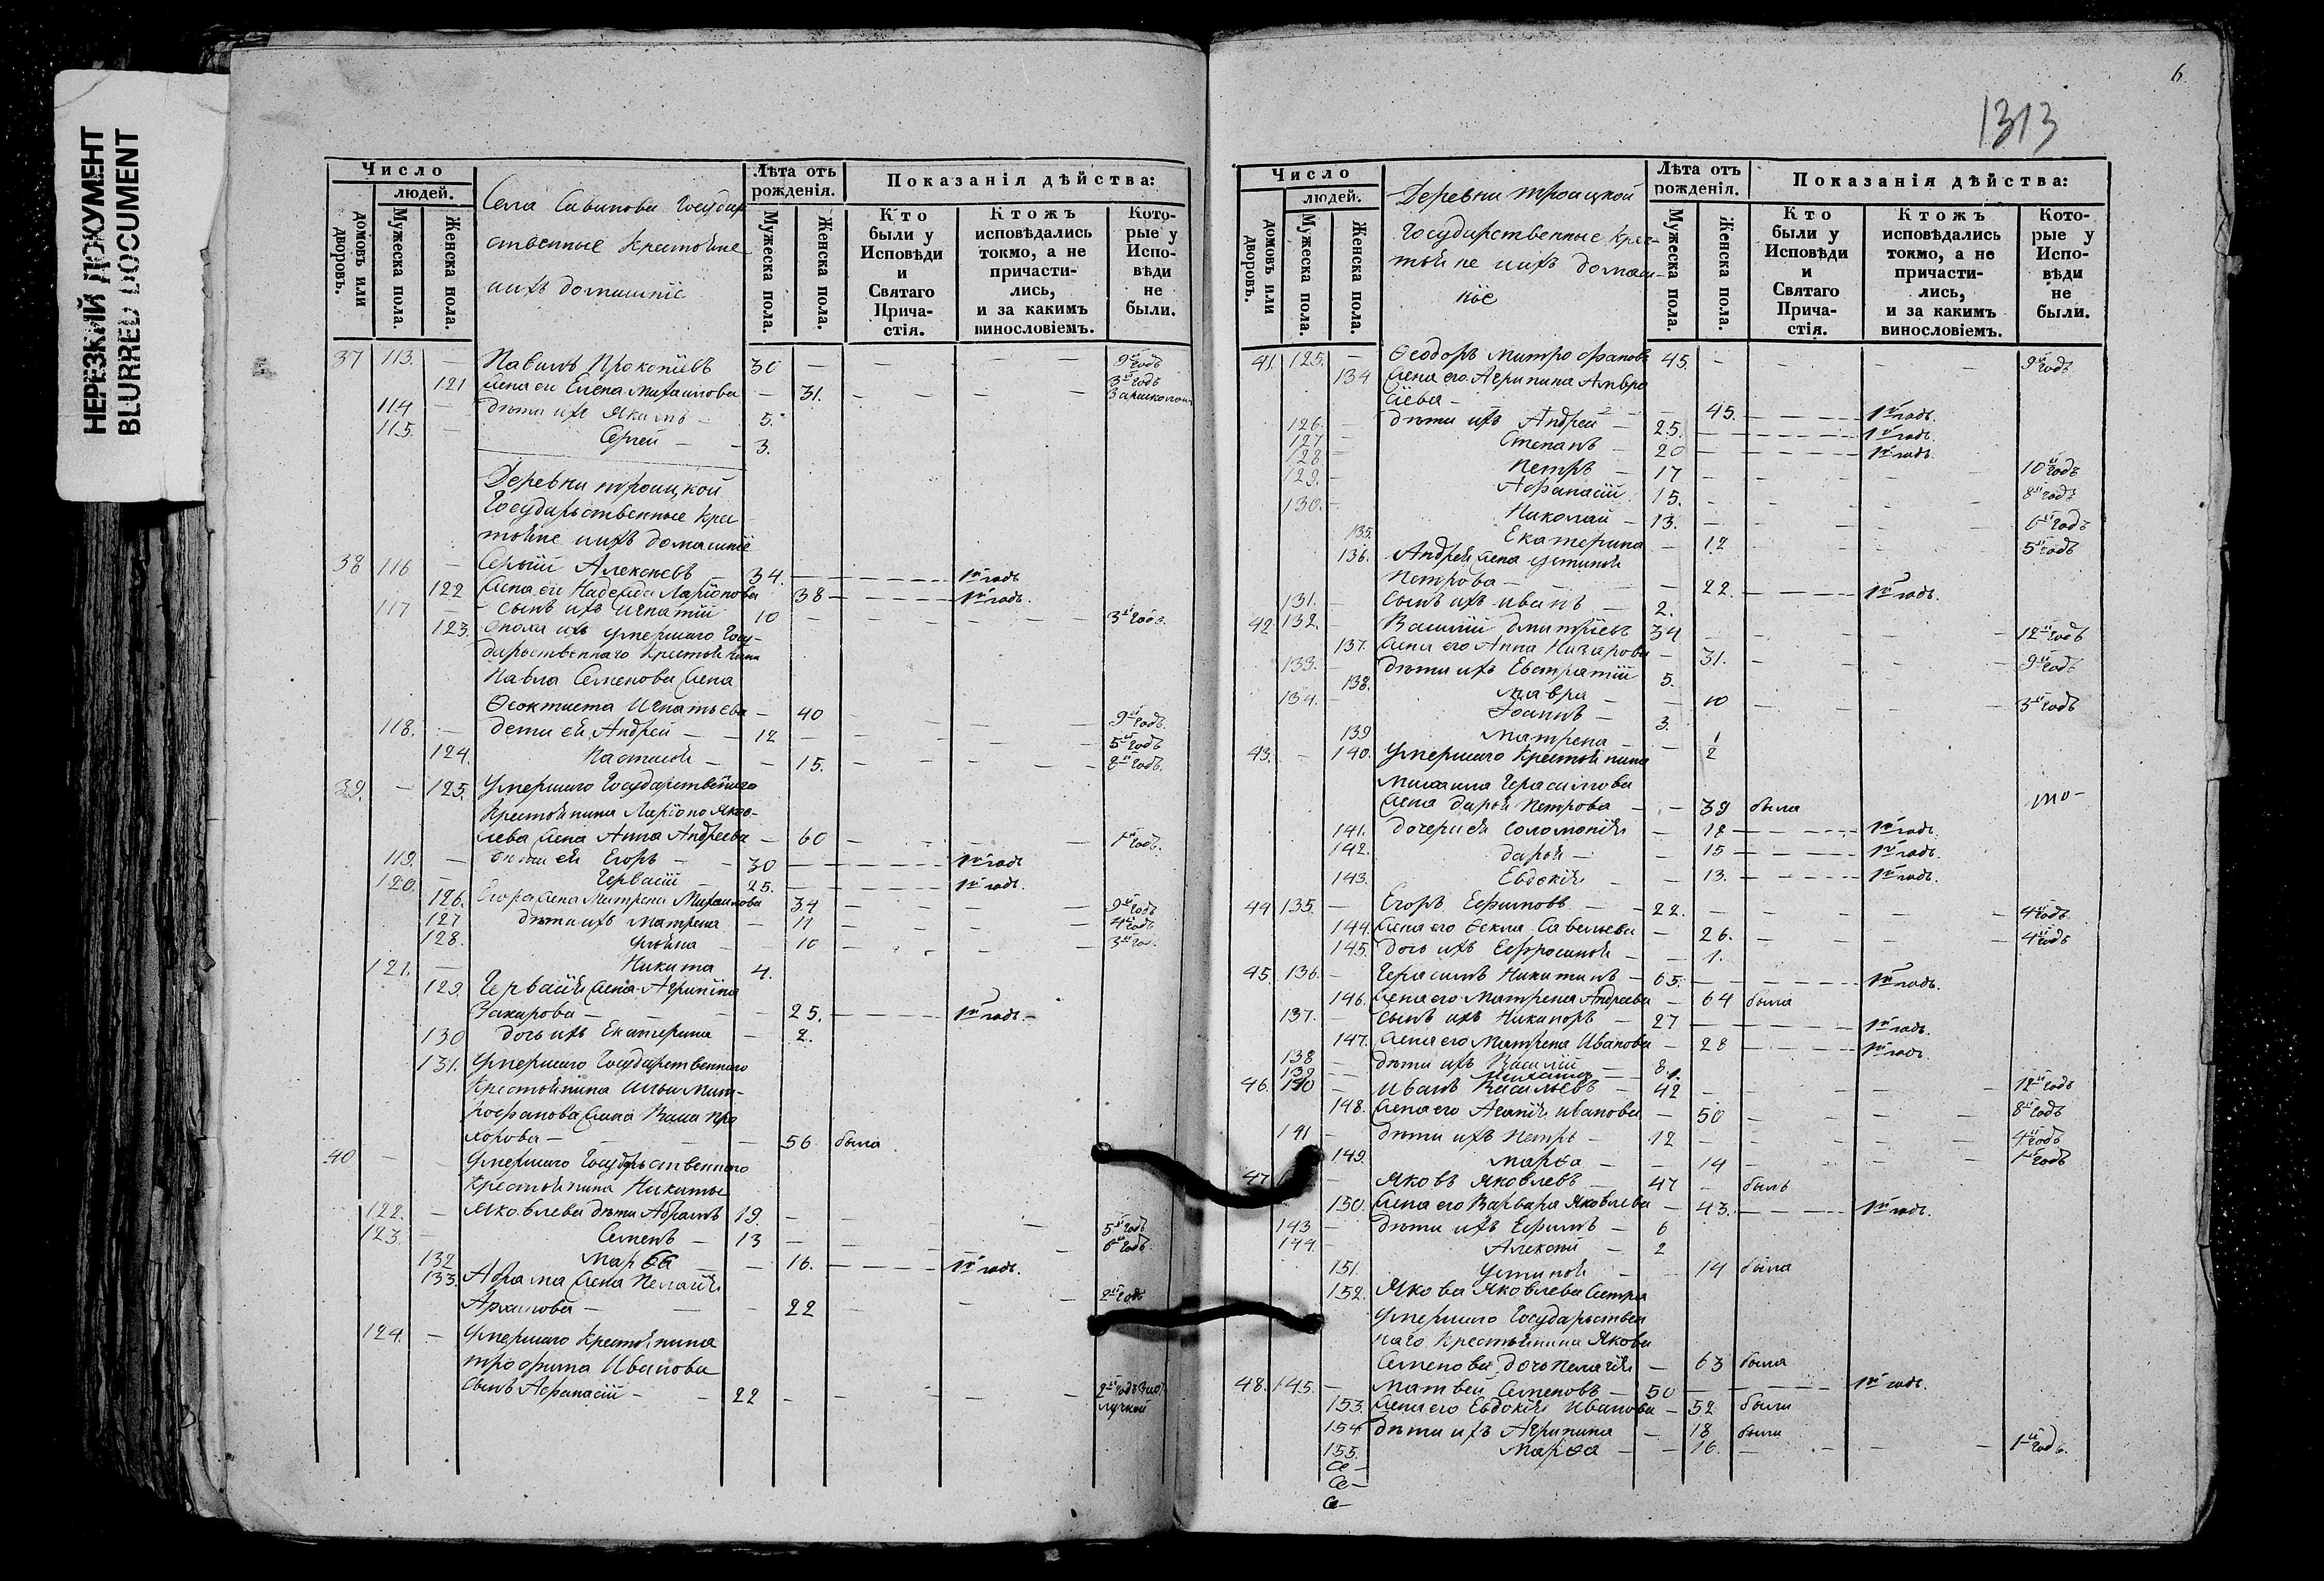 НЕРЕЗКИЙ ДОКУМЕНТ
BLURRED DOCUMENT
Число
людей.
домовъ или дворовъ.
Мужеска пола.
Женска пола.
Села Савинова Государ
ственные Крестьяне
ихъ домашніе
Лѣта отъ рожденія.
Мужеска пола.
Женска пола.
Показанія дѣйства:
Кто были у Исповѣди и Святаго Прича-стія.
Ктожъ исповѣдались токмо, а не причасти-лись, и за какимъ винословіемъ.
Кото-рые у Испо-вѣди не были.
37 113. — Павилъ Прокопіевъ 30 — — — 9й годъ
121 Жена его Елена Михаилова — 31. — — — 3й годъ
114 — дѣти ихъ Якимъ — 5.
115. — Сергей — — 3.
Деревни троицкой
Государственные Кре
стьяне ихъ домашніе
38 116 — Сергій Алексеевъ — 34. — — — — 1й годъ
122 Жена его Надежда Ларіонова 38 — — — — 1й годъ.
117 — сынъ ихъ Игнатій 10 — — — — 3й годъ.
123. Сноха ихъ умершаго Госу-
дарственнаго Крестьянина
Павла Семенова Жена
Ѳеоктиста Игнатьева — 40 — — — 9й годъ.
118. — дети ея Андрей — — 12 — — — 5й годъ
124. Настасья — — 15. — — — 8й годъ.
39. — 125. Умершаго Государственнаго
Крестьянина Ларіона Яков-
лева Жена Анна Андреева — 60 — — — 1й годъ.
119. — дѣти ея Егоръ — — 30 — — — 1й годъ
120. — Гервасій — 25. — — — 1й годъ.
126. Егора Жена Матрена Михаилова 34 — — — 9й годъ
127 дѣти ихъ Матрена — 11 — — — 4й годъ
128. — 10 — — — 3й год.
121. — Никита 4.
129. Гервасія Жена Агрипина
Захарова — — — 25. — — — — 1й годъ.—
130 дочь ихъ Екатерина — 2.
131. Умершаго Государственнаго
Крестьянина Ильи Мит-
рофанова Жена Васа Про
хорова — — — — 56 была
40 — — Умершаго Государственнаго
Крестьянина Никиты
122. — Яковлева дѣти Абрамъ 19. — — — 5й годъ
123. — Семенъ — 13 — — — 6й годъ.
132 Марѳа — — 16. — — — — 1й годъ.
133. Абрама Жена Пелагія
Архипова — — — 22 — — — 2й годъ
124. — Умершаго Крестьянина
Трофима Иванова
сынъ Афанасій — — 22 — — — — 2й годъ
6
1313
Число
людей.
домовъ или дворовъ.
Мужеска пола.
Женска пола.
Деревни троицкой
Государственные Крес-
тьяне ихъ домаш-
ніе
Лѣта отъ рожденія.
Мужеска пола.
Женска пола.
Показанія дѣйства:
Кто были у Исповѣди и Святаго Прича-стія.
Ктожъ исповѣдались токмо, а не причасти-лись, и за какимъ винословіемъ.
Кото-рые у Испо-вѣди не были.
41. 125. — Ѳеодоръ Митрофановъ 45. — — — — 9й годъ
134 Жена его Агрипина Амвро
сіева — — — 45. — — — — 1й годъ.
126. — дѣти ихъ Андрей — 25. — — — — 1й годъ.
127 — Степанъ — 20 — — — — 1й годъ.
128 — Петръ — 17 — — — 10й годъ
129. — Афанасій 15. — — — 8й годъ
130. — Николай — 13. — — — 6й годъ
135. Екатерина — 12 — — — 5й годъ
136. Андрея Жена Устинья
Петрова — — — 22. — — — — 1й годъ.
131. — сынъ ихъ Иванъ — 2.
42 132. — Василій Дмитріевъ 34 — — — — 12й годъ
137. Жена его Анна Назарова — 31. — — — 9й годъ
133. — дѣти ихъ Евстратій 5.
138. Мавра — — 10 — — — 3й годъ
134. — Іоаннъ — 3.
139 Матрена — — 1
43. — 140. Умершаго Крестьянина 2
Михаила Герасимова
Жена Дарья Петрова — — 39 была
141. дочери ея Соломонія — 18 — — — 1й годъ.
142. Дарья — — 15 — — — 1й годъ.
143. Евдокія — — 13. — — — 1й годъ.
44 135. — Егоръ Ефимовъ — 22. — — — — 4й годъ.
144. Жена его Ѳекла Савельева — 26. — — — 4й годъ
145. дочь ихъ Ефросинья — — 1.
45. 136. — Герасимъ Никитинъ — 65. — — — — 1й годъ.
146. Жена его Матрена Андреева — 64 была
137. — сынъ ихъ Никаноръ — 27 — — — — 1й годъ.
147. Жена его Матрена Иванова — 28 — — — — 1й годъ.
138 — дѣти ихъ Василій — 8.
139 — Михаилъ — 1.
46. 140 — Иванъ Васильевъ — 42 — — — — 12й годъ
148. Жена его Агапія Иванова — 50 — — — 8й годъ
141 — дѣти ихъ Петръ — 12 — — — 4й годъ
149. Марѳа — — 14 — — — 1й годъ
47 — Яковъ Яковлевъ — 47 — былъ
150. Жена его Варвара Яковлева — 43. — — — 1й годъ.
143 — дѣти ихъ Ефимъ — 6
144. Алексѣй — 2
151. Устинья — — 14 была
152. Якова Яковлева Сестра
Умершаго Государствен
наго Крестьянина Якова
Семенова дочь Пелагія — 63 была
48. 145. — Матвей Семеновъ — 50 — — — — 1й годъ.
153. Жена его Евдокія Иванова — 52 была
154 дѣти ихъ Агрипина — 18 была
155. Марѳа — — 16. — — — 1й годъ.